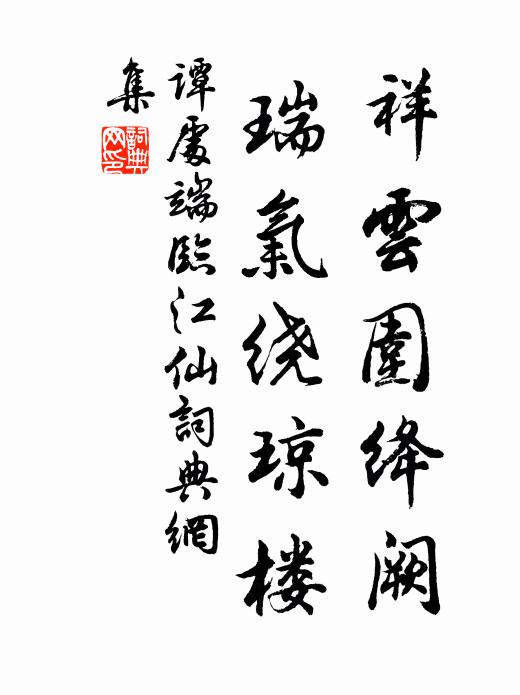 祥雲圍絳闕
瑞氣绕琼楼
譚處端臨江仙詞典網
集
詞典网印